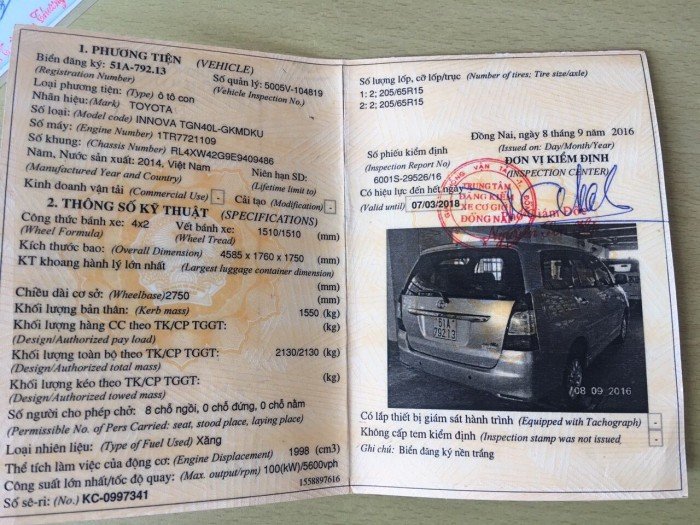 1. PHƯƠNG TIỆN (VEHICLE)
Biển đăng ký: 51A-792.13
(Registration Number)
Số quản lý: 5005V-104819
(Vehicle Inspection No.)
Loại phương tiện: (Type) ô tô con
Nhãn hiệu: (Mark) TOYOTA
Số loại: (Model code) INNOVA TGN40L-GKMDKU
Số máy: (Engine Number) 1TR7721109
Số khung: (Chassis Number) RL4XW42G9E9409486
Năm, Nước sản xuất: 2014, Việt Nam
(Manufactured Year and Country)
Niên hạn SD:
(Lifetime limit to)
Kinh doanh vận tải (Commercial Use) -
Cải tạo (Modification) -
2. THÔNG SỐ KỸ THUẬT (SPECIFICATIONS)
Công thức bánh xe: 4x2
(Wheel Formula)
Vết bánh xe: 1510/1510 (mm)
(Wheel Tread)
Kích thước bao: (Overall Dimension) 4585 x 1760 x 1750 (mm)
KT khoang hành lý lớn nhất (Largest luggage container dimension)
(mm)
Chiều dài cơ sở: (Wheelbase) 2750 (mm)
Khối lượng bản thân: (Kerb mass) 1550 (kg)
Khối lượng hàng CC theo TK/CP TGGT: (kg)
(Design/Authorized pay load)
Khối lượng toàn bộ theo TK/CP TGGT: 2130/2130 (kg)
(Design/Authorized total mass)
Khối lượng kéo theo TK/CP TGGT: (kg)
(Design/Authorized towed mass)
Số người cho phép chở: 8 chỗ ngồi, 0 chỗ đứng, 0 chỗ nằm
(Permissible No. of Pers Carried: seat, stood place, laying place)
Loại nhiên liệu: (Type of Fuel Used) Xăng
Thể tích làm việc của động cơ: (Engine Displacement) 1998 (cm3)
Công suất lớn nhất/tốc độ quay: (Max. output/rpm) 100(kW)/5600vph
1558897616
Số sê-ri: (No.) KC-0997341
Số lượng lốp, cỡ lốp/trục (Number of tires; Tire size/axle)
1: 2; 205/65R15
2: 2; 205/65R15
Đồng Nai, ngày 8 tháng 9 năm 2016
(Issued on: Day/Month/Year)
Số phiếu kiểm định
(Inspection Report No)
6001S-29526/16
ĐƠN VỊ KIỂM ĐỊNH
(INSPECTION CENTER)
Có hiệu lực đến hết ngày
(Valid until) 07/03/2018
TRUNG TÂM
ĐĂNG KIỂM
XE CƠ GIỚI
ĐỒNG NAI
51A
79213
08 09 2016
Có lắp thiết bị giám sát hành trình (Equipped with Tachograph) -
Không cấp tem kiểm định (Inspection stamp was not issued) -
Ghi chú: Biển đăng ký nền trắng